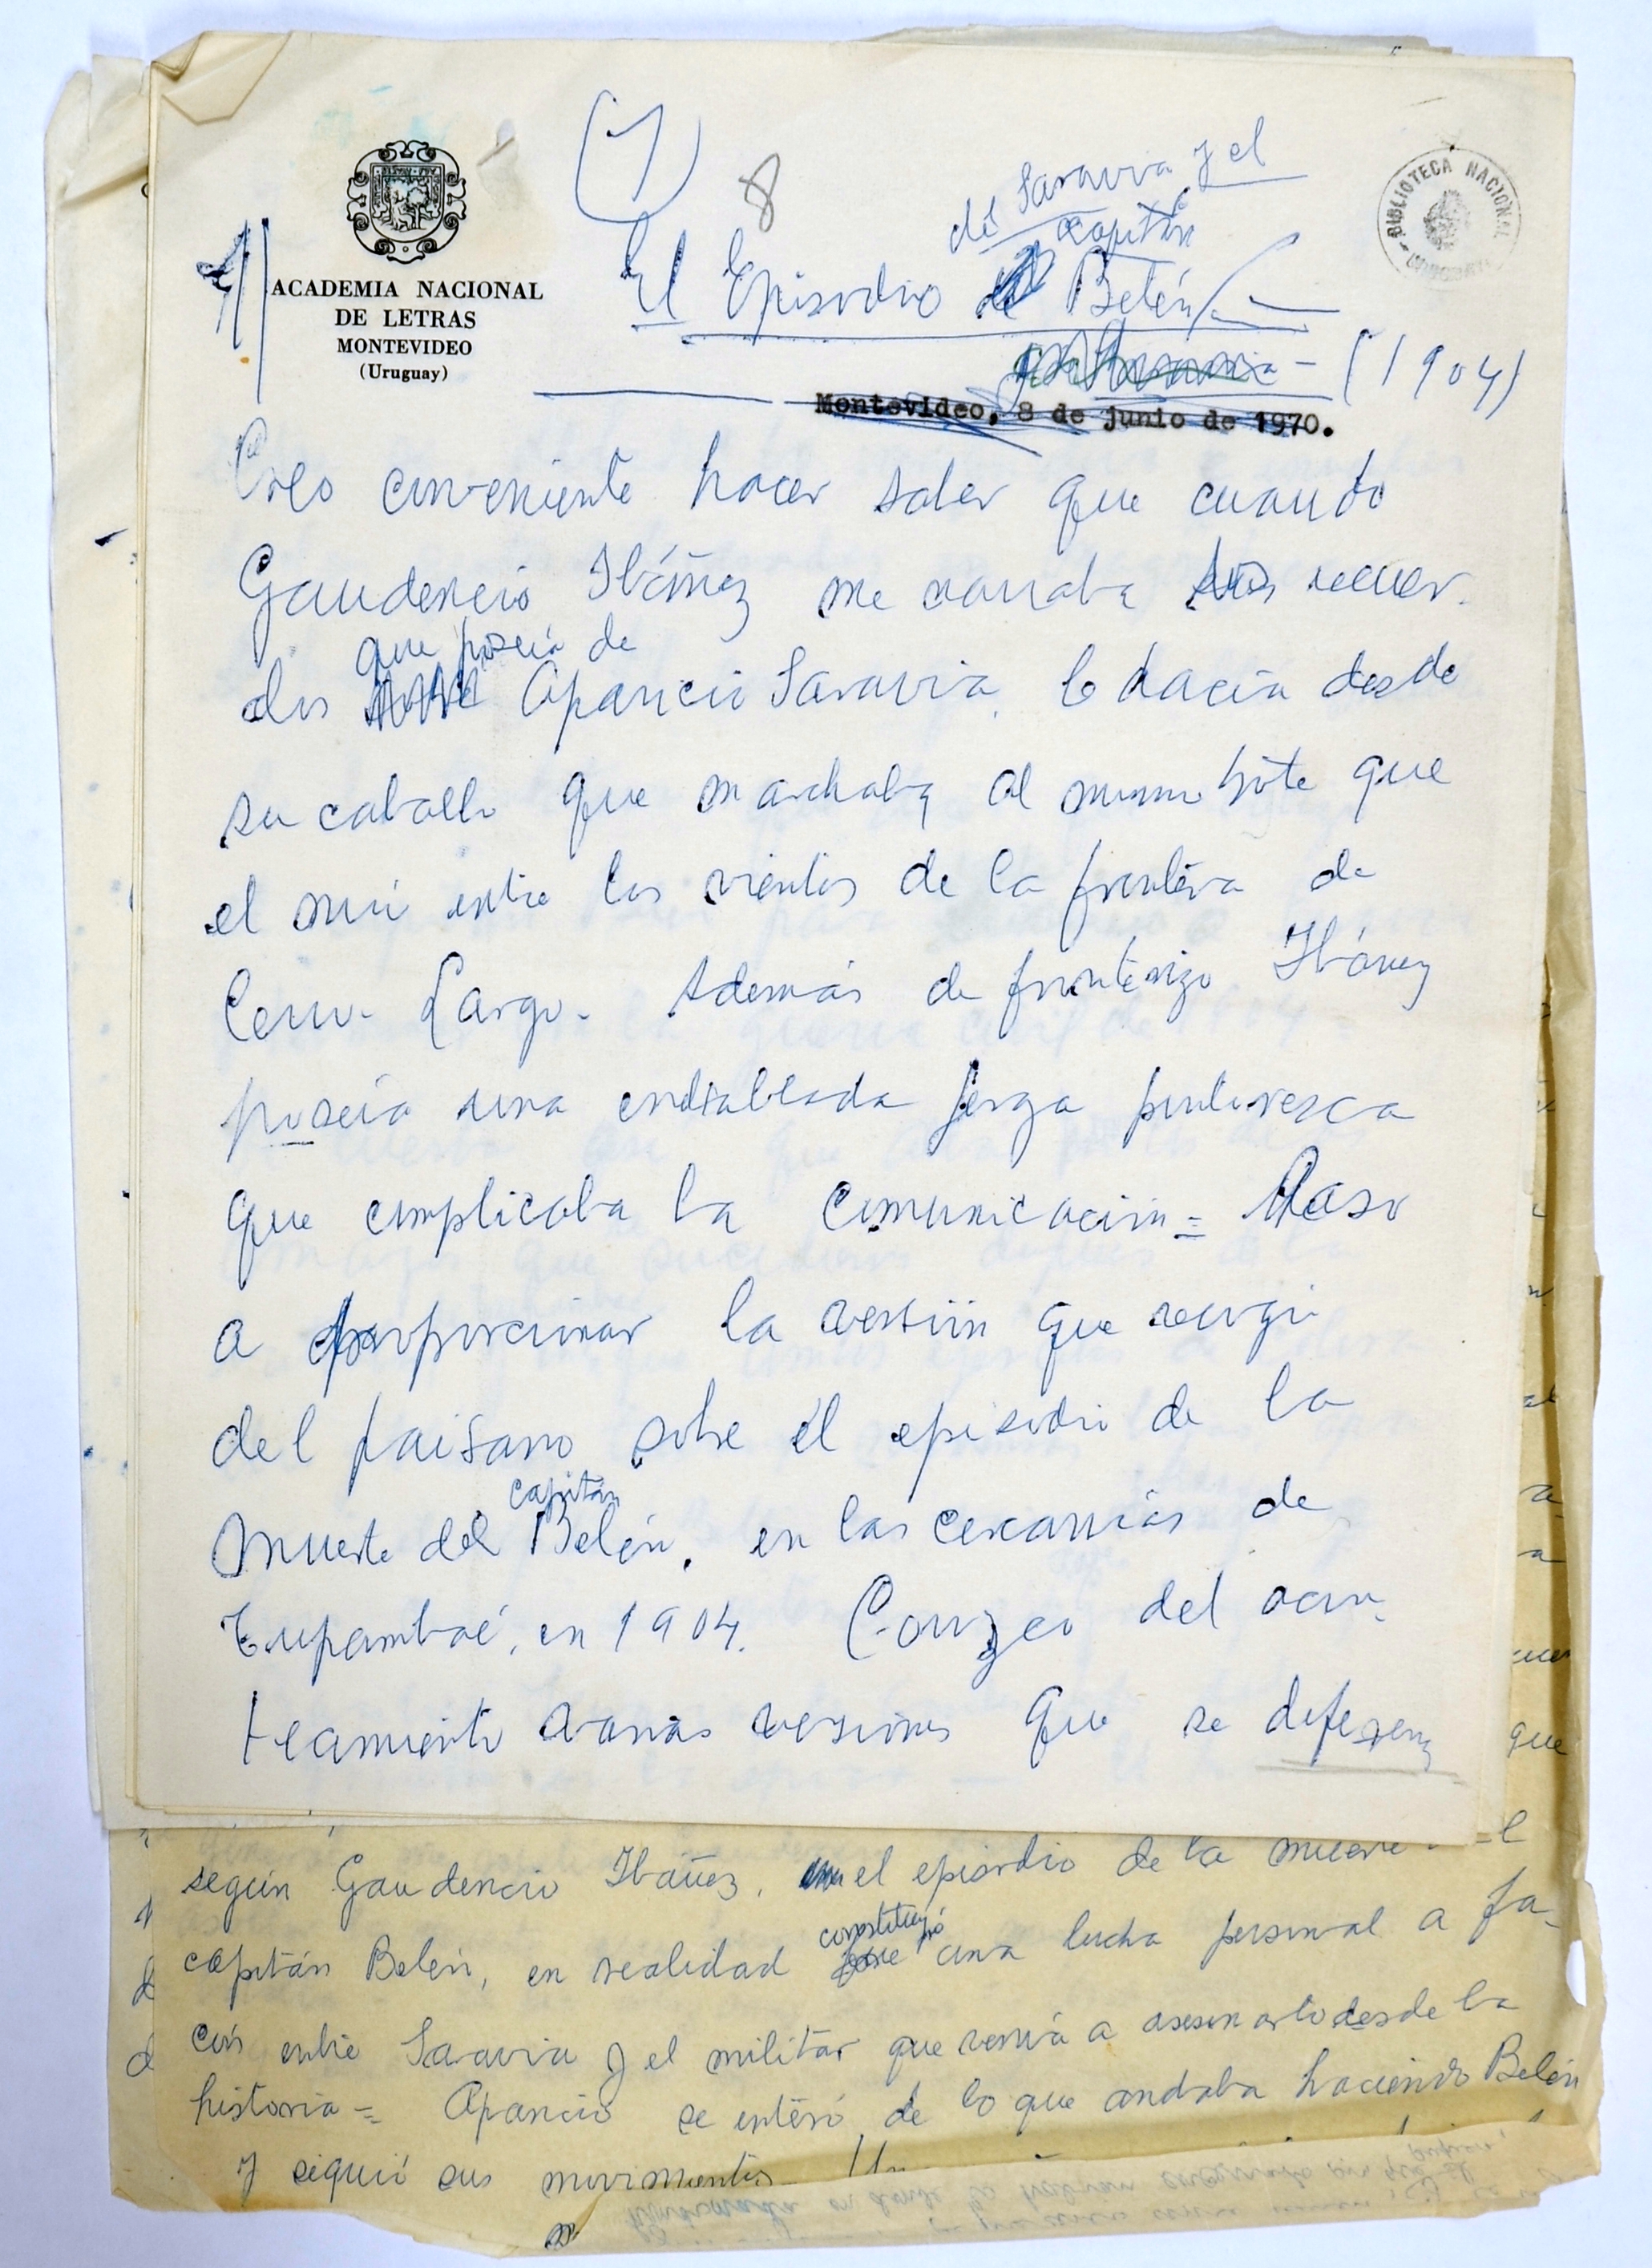 (7)
8
de Saravia y el
capitán
1)
El Episodio Belén
ACADEMIA NACIONAL
DE LETRAS
MONTEVIDEO
(Uruguay)
BIBLIOTECA NACIONAL
(1904)
Montevideo, 8 de junio de 1970.
Creo conveniente hacer saber que cuando
Gaudencio Ibáñez me narraba sus recuer-
que poseía de
dos Aparicio Saravia, lo hacía desde
su caballo que marchaba al mismo trote que
el mío entre los vientos de la frontera de
Cerro Largo. Además de fronterizo Ibáñez
poseía una endiablada jerga pintoresca
que complicaba la comunicación = Paso
a proporcionar la versión que recogí
del paisano sobre el episodio de la
capitán
muerte del Belén, en las cercanías de
Tupambaé, en 1904. Conozco del acon-
tecimiento varias versiones que se diferencia
según Gaudencio Ibáñez, el episodio de la muerte
constituyó
capitán Belén, en realidad fue una lucha personal a fa-
cón entre Saravia y el militar que venía a asesinarlo desde la
historia = Aparicio se enteró de lo que andaba haciendo Belén
y siguió sus movimientos
que